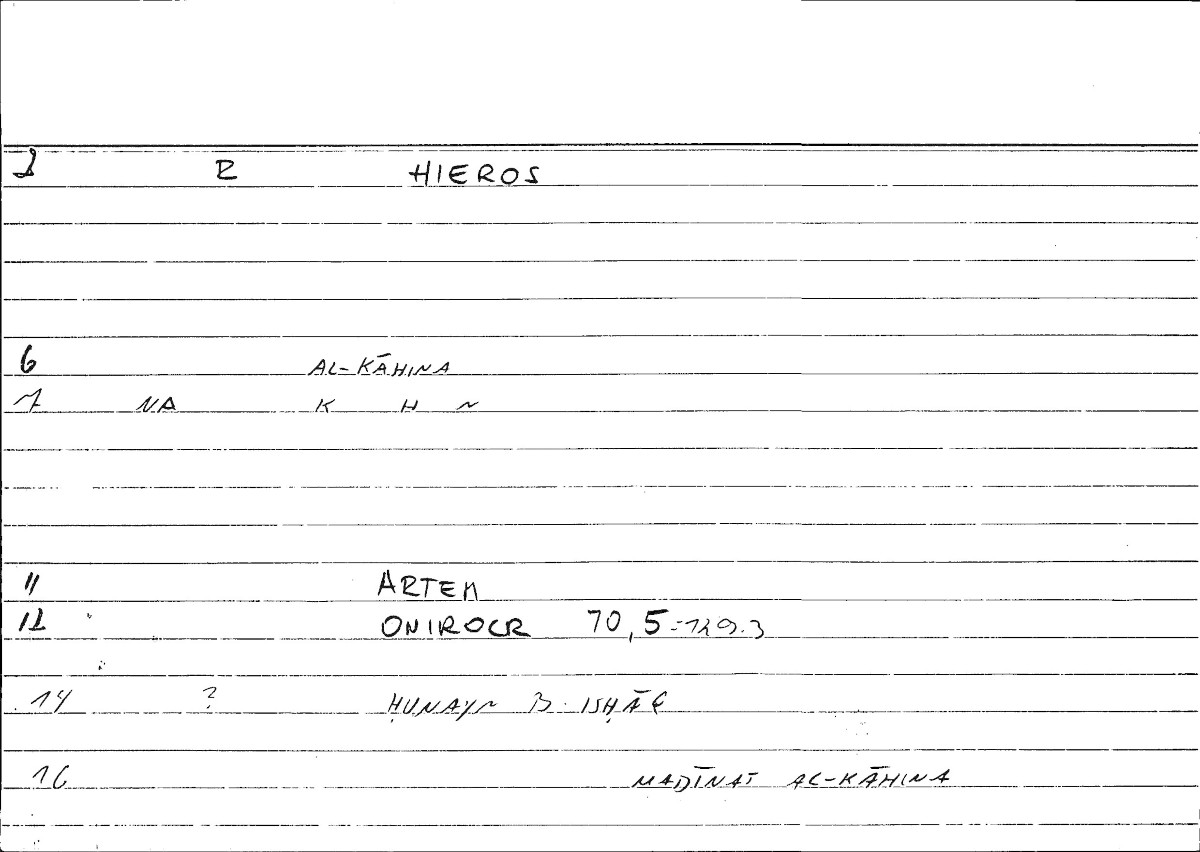 2 R HIEROS
6 AL-KĀHINA
7 NA K H N
11 ARTEM
12 ONIROCR 70,5-129.3
14 ? ḤUNAYN B. ISḤĀQ
16 MADĪNAT AL-KĀHINA